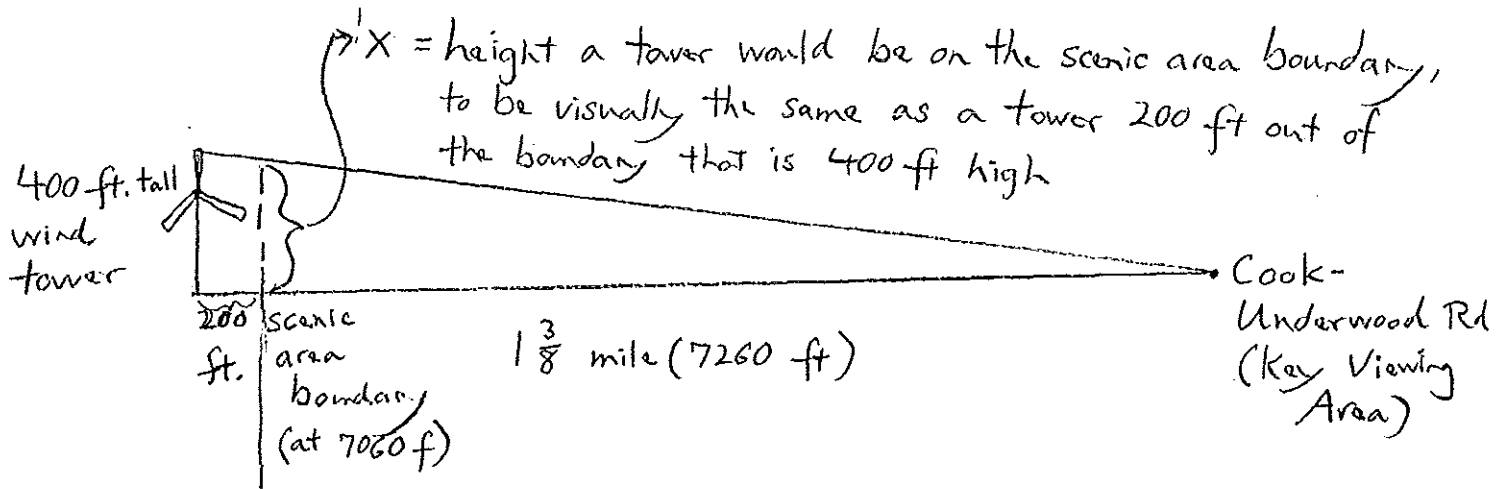 X = height a tower would be on the scenic area boundary,
to be visually the same as a tower 200 ft out of
the boundary that is 400 ft high
400 ft. tall
wind
tower
200
ft.
scenic
area
boundary
(at 7060 f)
1 3/8 mile (7260 ft)
Cook-
Underwood Rd
(Key Viewing
Area)